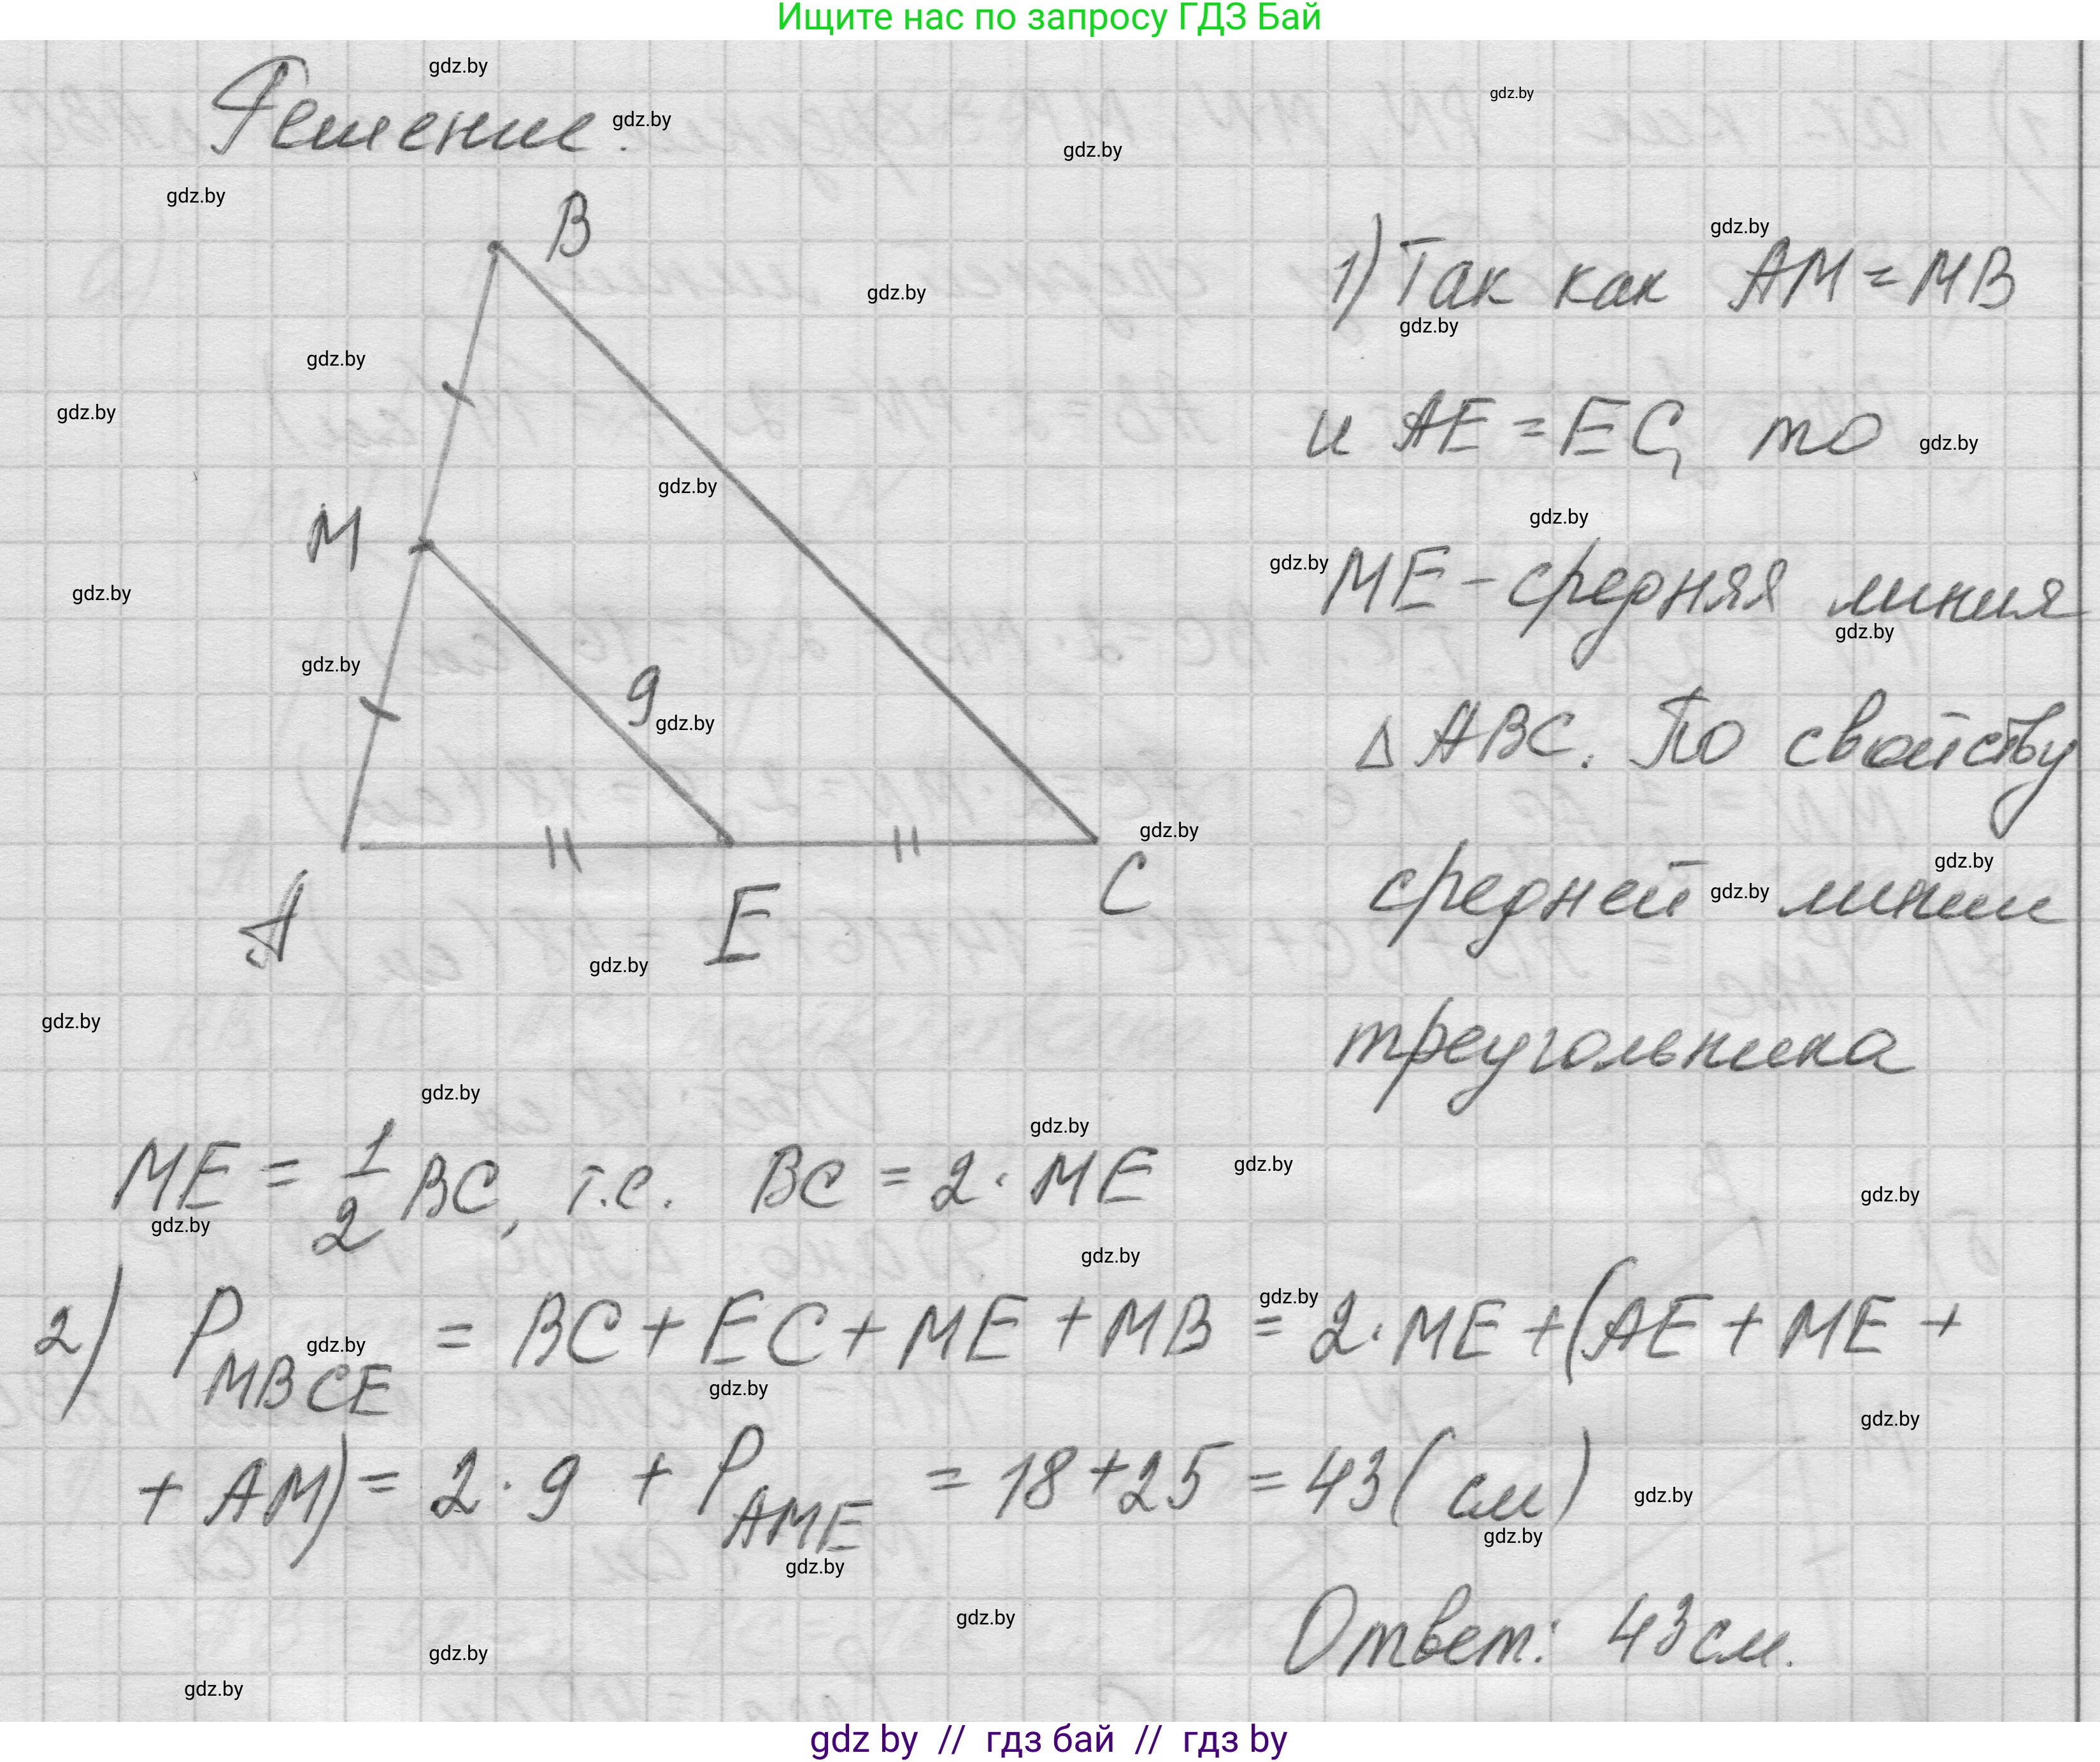 Ищите нас по запросу ГДЗ Бай
Решение.
B
M
9
A
E
C
1) Так как AM = MB
и AE = EC, то
ME - средняя линия
Δ ABC. По свойству
средней линии
треугольника
ME = 1/2 BC, т.е. BC = 2 · ME
2) P MBCE = BC + EC + ME + MB = 2 · ME + (AE + ME +
+ AM) = 2 · 9 + P AME = 18 + 25 = 43 (см)
Ответ: 43 см.
gdz by // гдз бай // гдз by